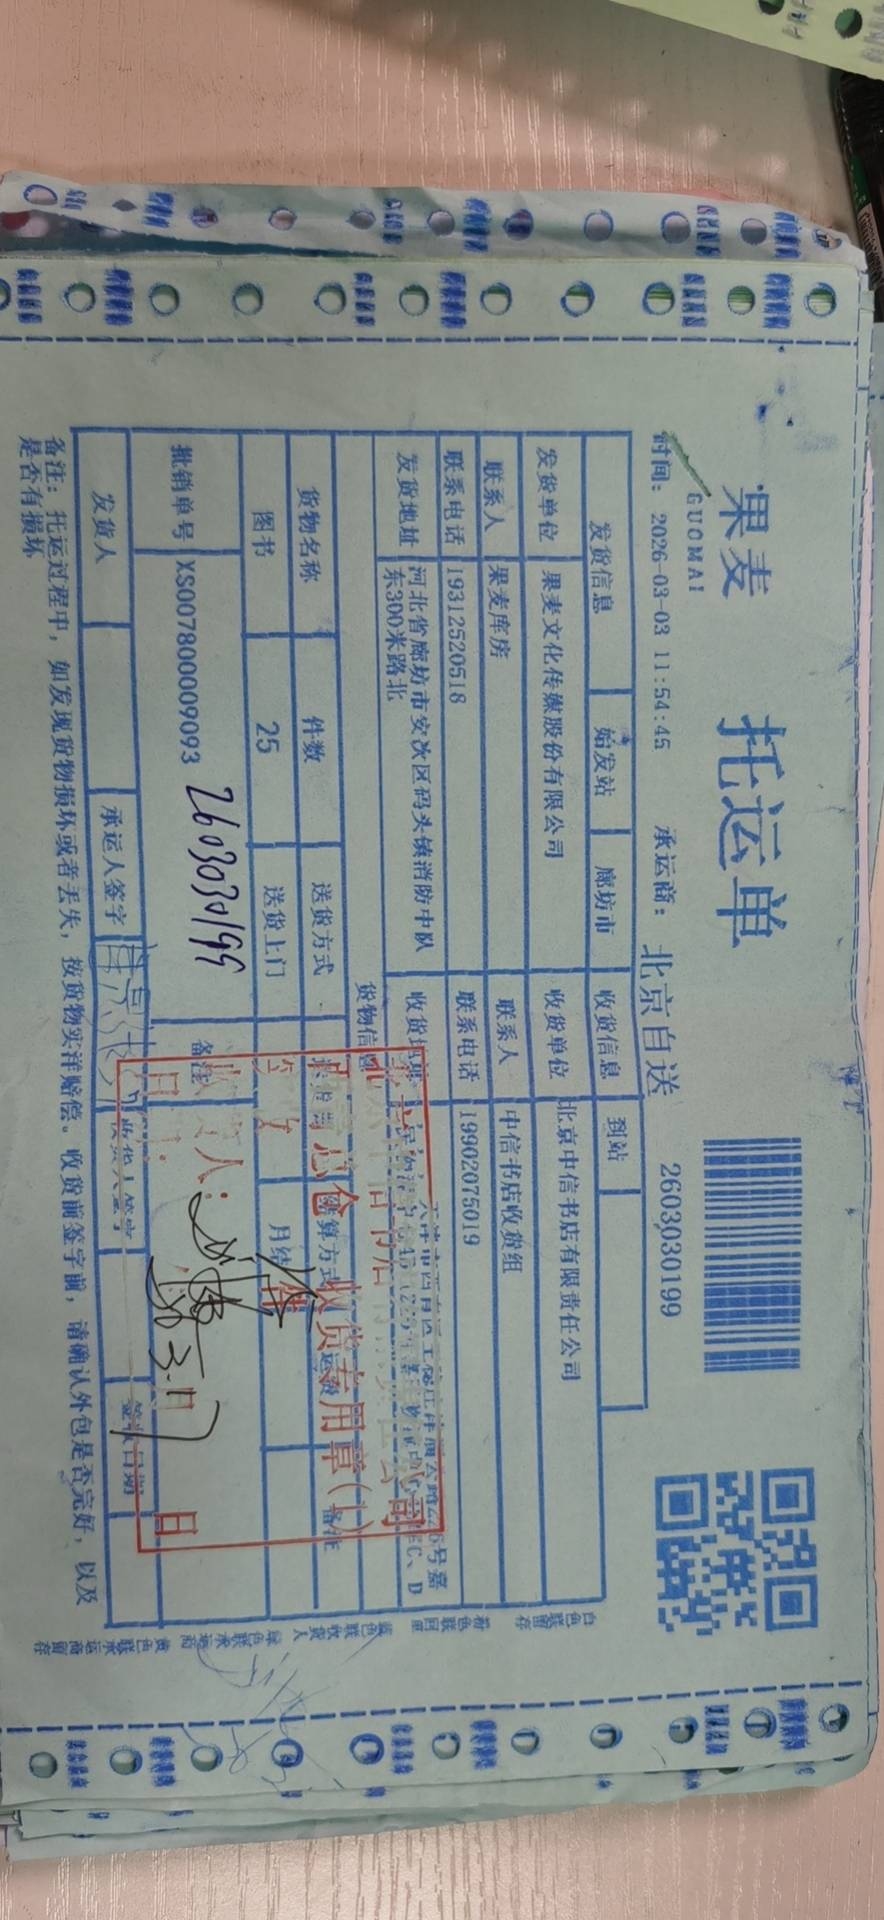 果麦
GUOMAI
托运单
2603030199
时间: 2026-03-03 11:54:45 承运商: 北京自送
发货信息 始发站 廊坊市 收货信息 到站
发货单位 果麦文化传媒股份有限公司 收货单位 北京中信书店有限责任公司
联系人 果麦库房 联系人 中信书店收货组
联系电话 19312520518 联系电话 19902075019
发货地址 河北省廊坊市安次区码头镇消防中队
东300米路北
货物信息
货物名称 件数 送货方式 结算方式 运费 备注
图书 25 送货上门 月结
批销单号 XS007800009093 备注
2603030199
收货专用章(1)
发货人 承运人签字 收货人签字 签收日期
备注: 托运过程中, 如发现货物损坏或者丢失, 按货物实洋赔偿。收货前签字前, 请确认外包是否完好, 以及
是否有损坏
白色联留存 粉色联回单 蓝色联收货人 绿色联承运商 黄色联承运商留存